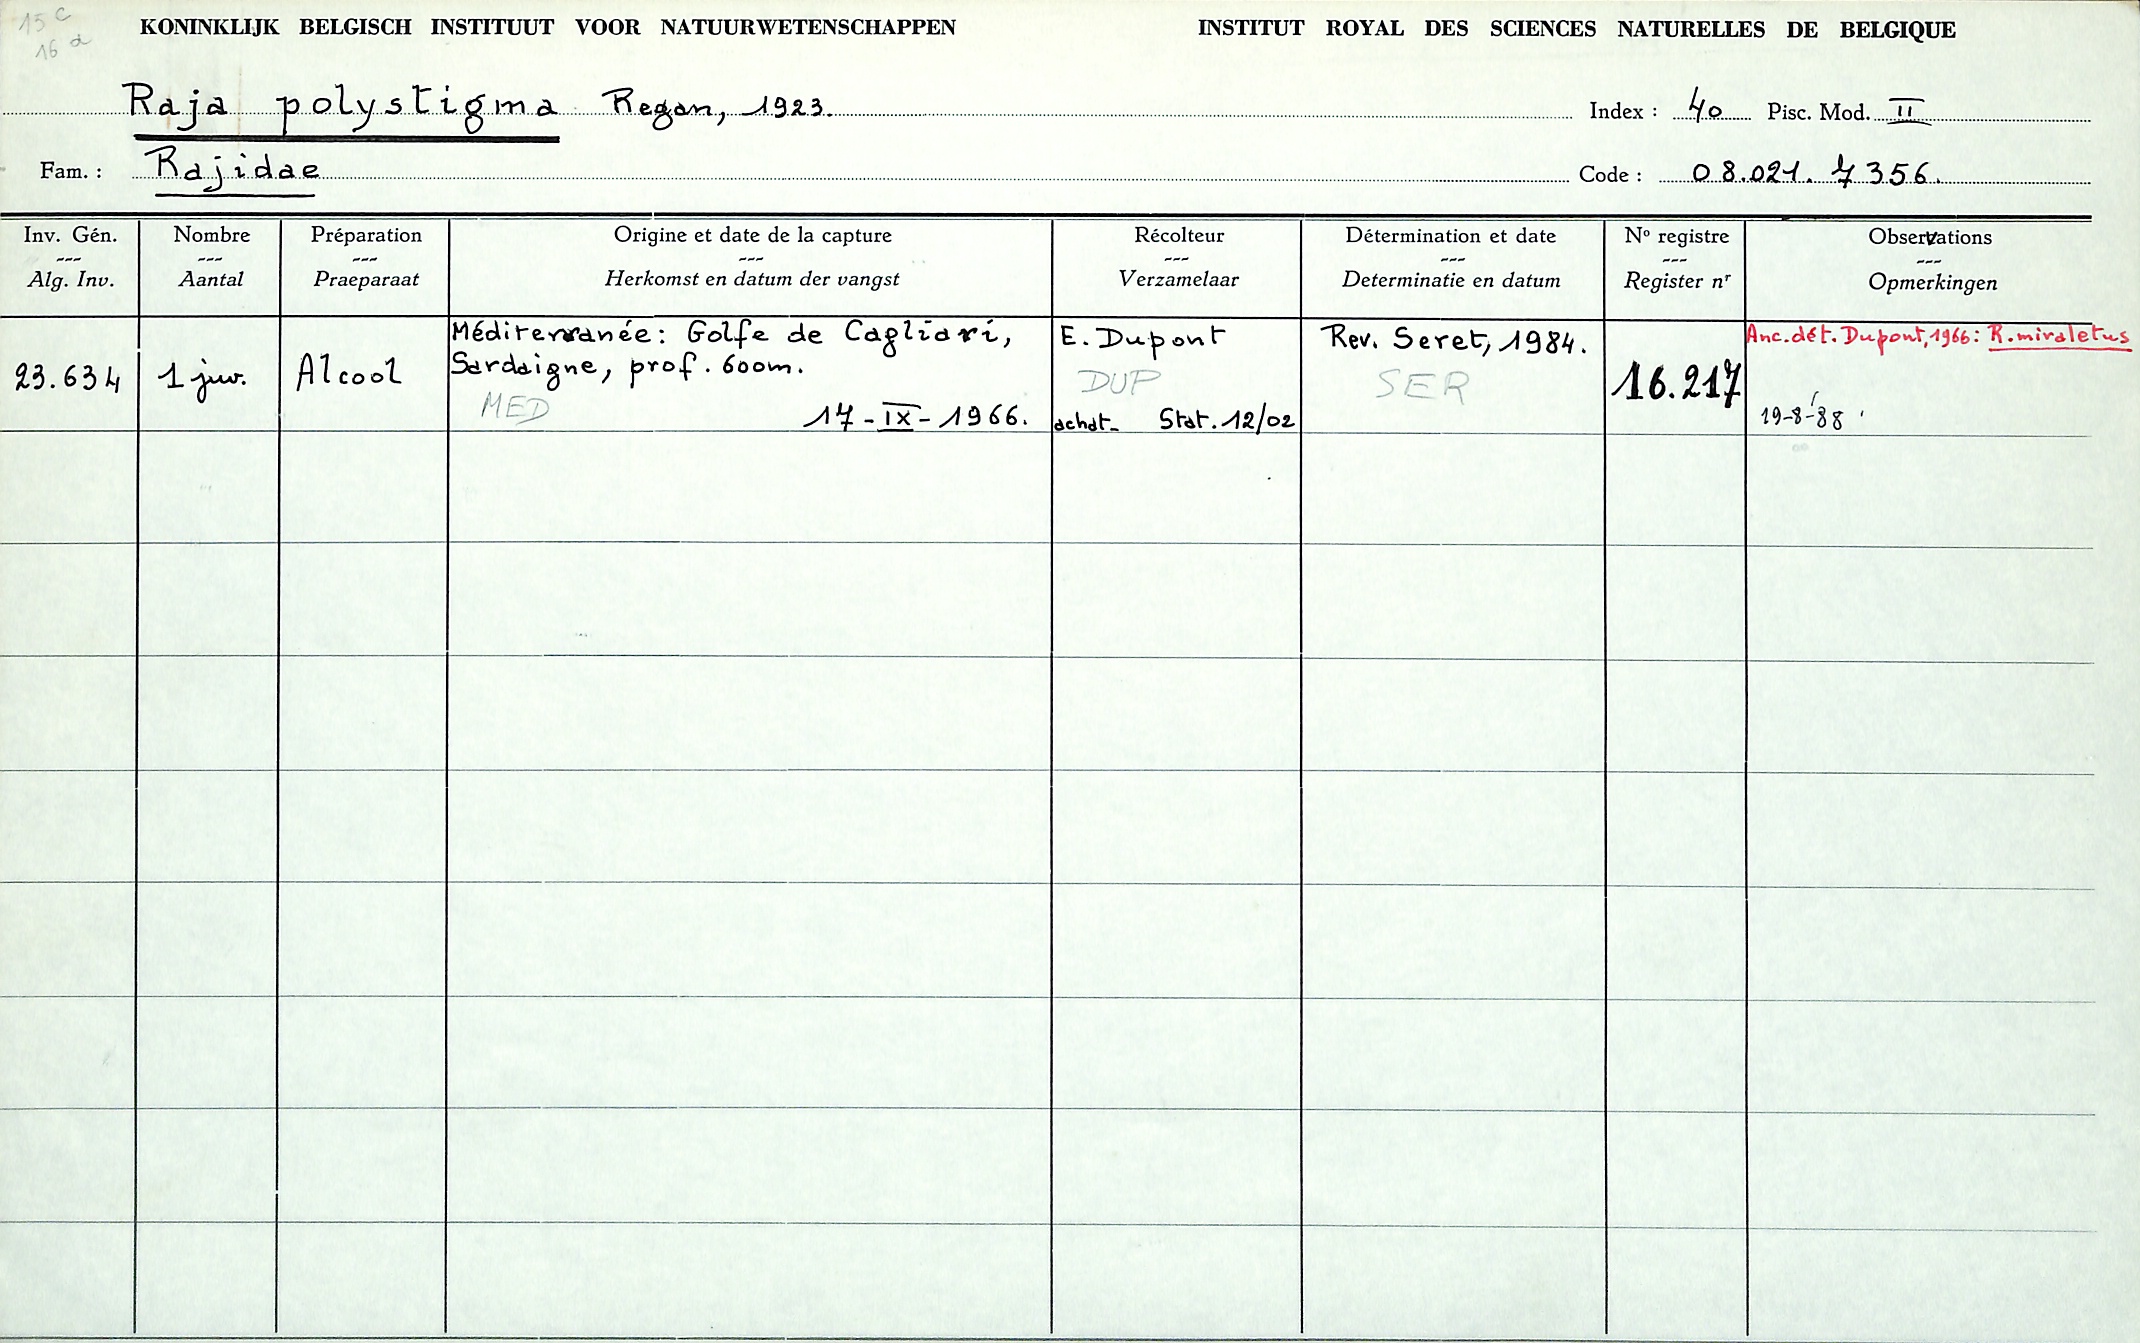 15 c
16 a
KONINKLIJK BELGISCH INSTITUUT VOOR NATUURWETENSCHAPPEN
INSTITUT ROYAL DES SCIENCES NATURELLES DE BELGIQUE
Raja polystigma Regan, 1923.
Index : 40 Pisc. Mod. II
Fam. : Rajidae
Code : 08.021. 7356.
Inv. Gén. Nombre Préparation Origine et date de la capture Récolteur Détermination et date No registre Observations
--- --- --- --- --- --- --- ---
Alg. Inv. Aantal Praeparaat Herkomst en datum der vangst Verzamelaar Determinatie en datum Register nr Opmerkingen
23.634
1 juv.
Alcool
Méditerranée: Golfe de Cagliari,
Sardaigne, prof. 600m.
MED
17-IX-1966.
E. Dupont
DUP
achat- Stat. 12/02
Rev. Seret, 1984.
SER
16.217
Anc. dét. Dupont, 1966: R. miraletus
19-8-88